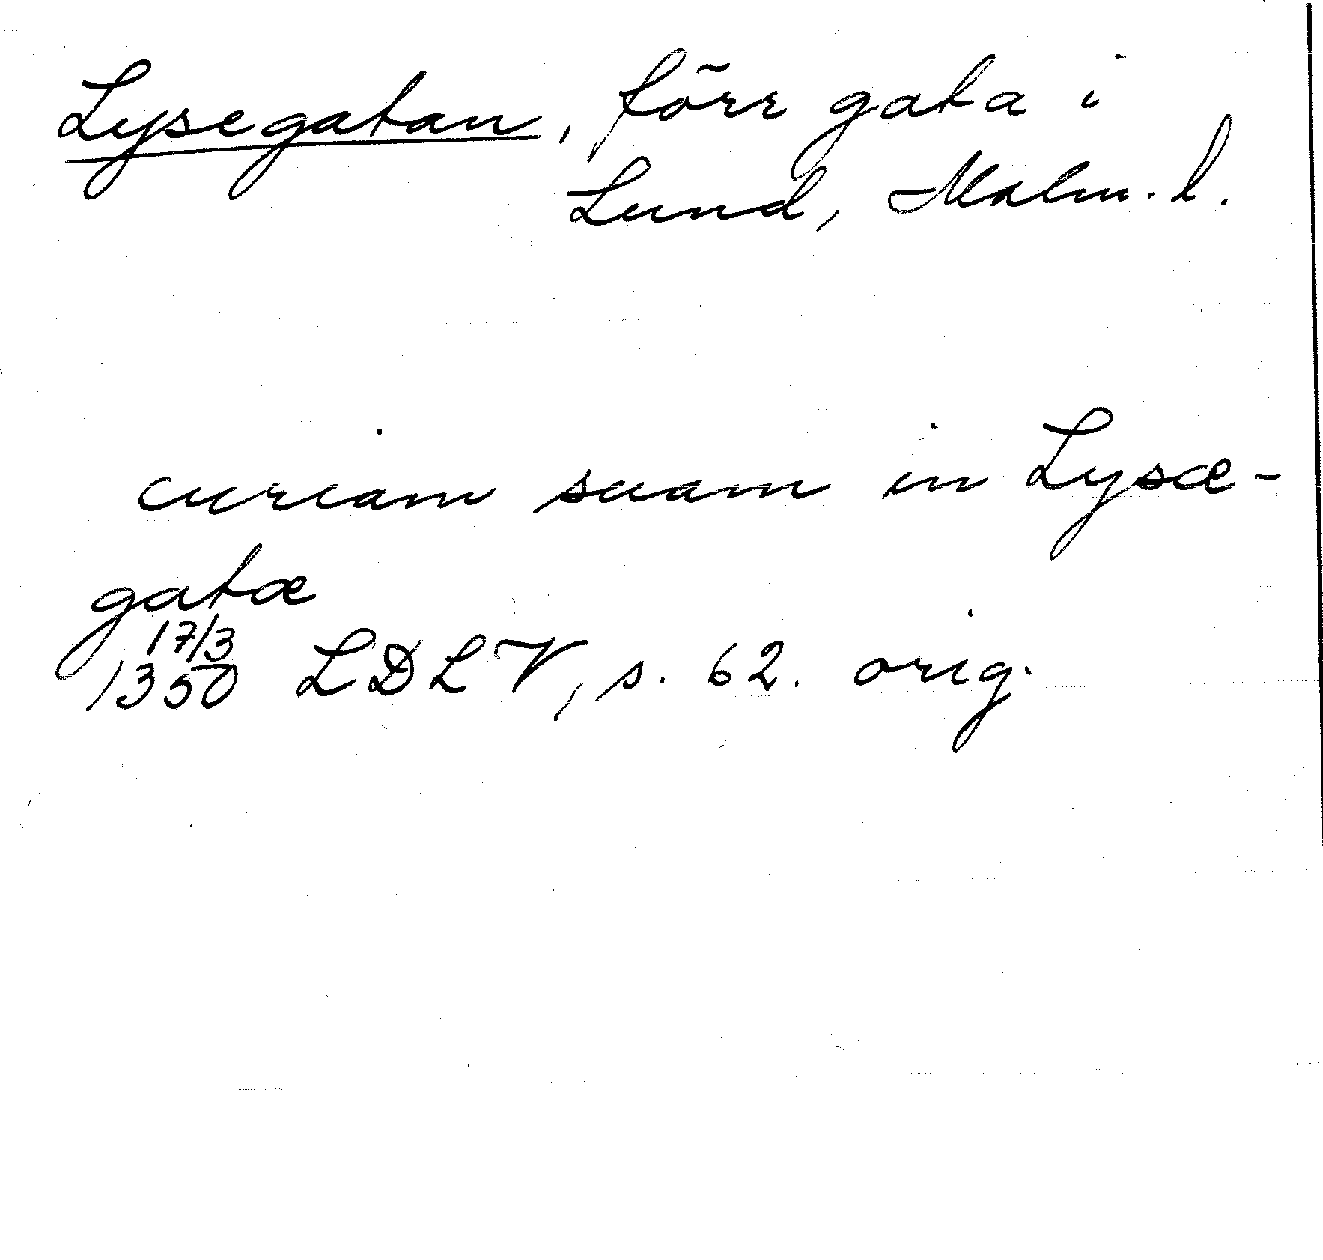 Lysegatan, förr gata i
Lund, Malm. l.
curiam suam in Lysæ-
gatæ
17/3
1350 LDLV, s. 62. orig.